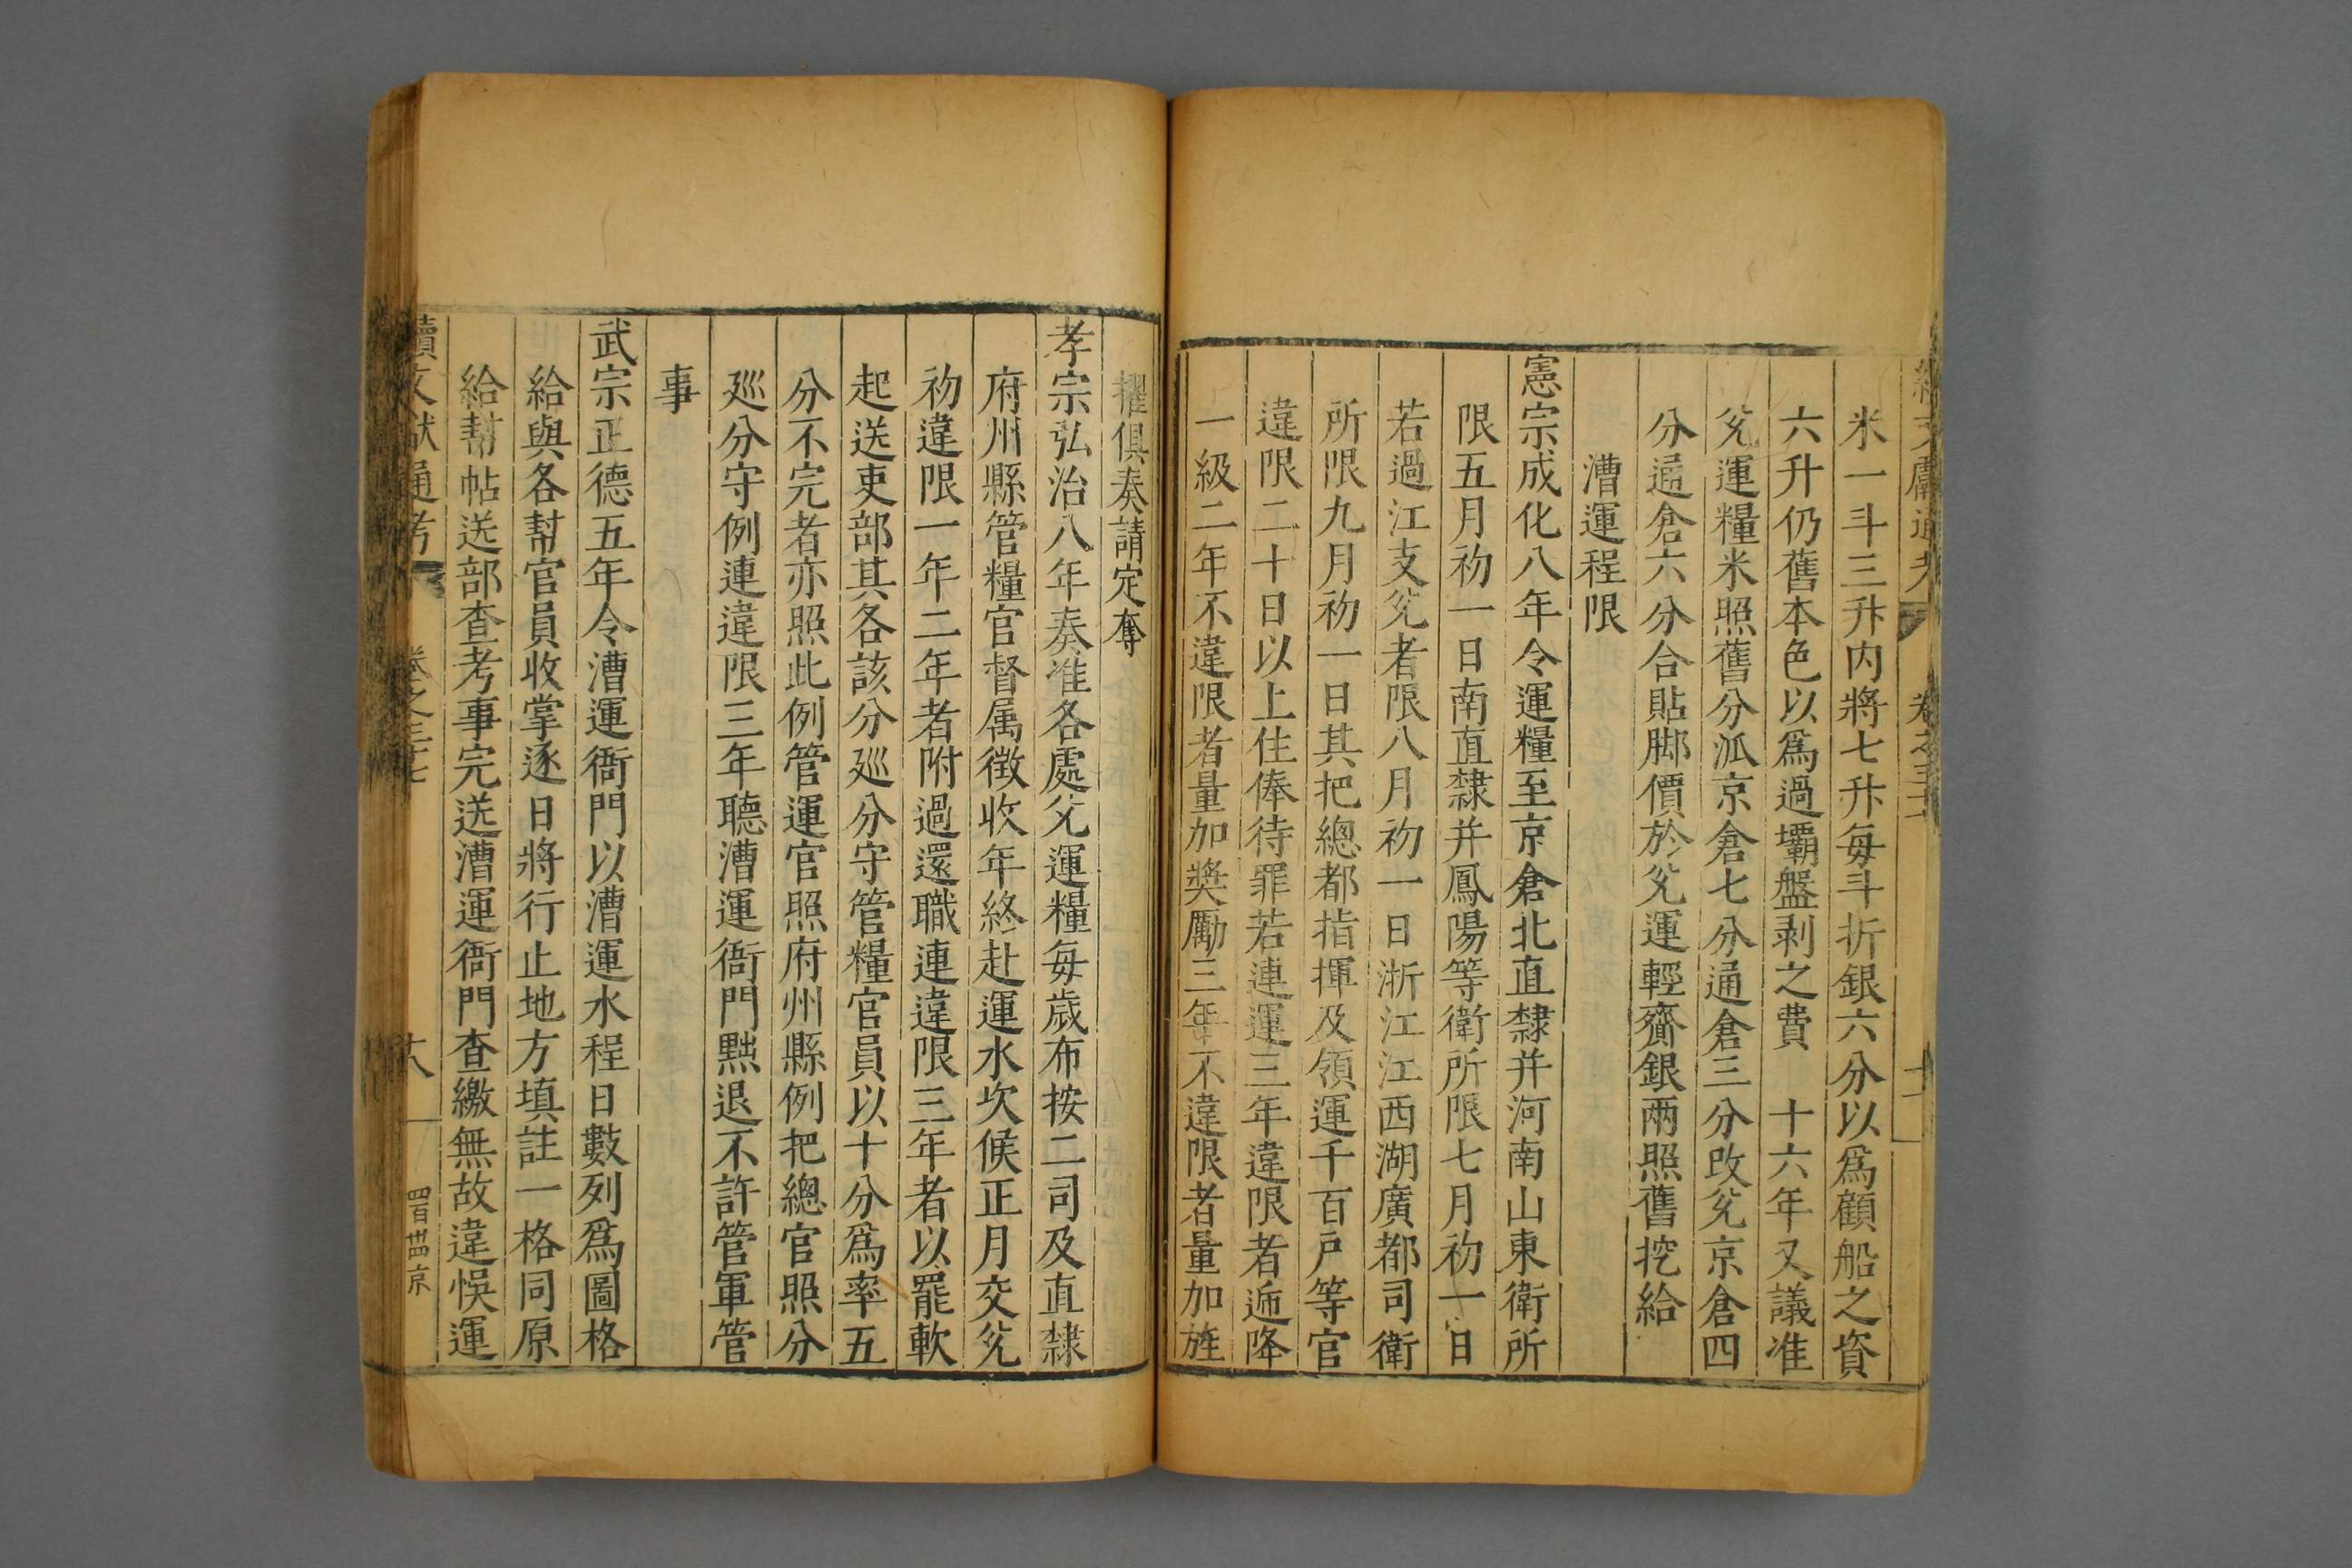 米一斗三升内將七升每斗折銀六分以爲顧船之資
六升仍舊本色以爲過壩盤剥之費　十六年又議准
兊運糧米照舊分泒京倉七分通倉三分改兊京倉四
分通倉六分合貼脚價於兊運輕齎銀兩照舊挖給
漕運程限
憲宗成化八年令運糧至京倉北直隸并河南山東衛所
限五月初一日南直隸并鳳陽等衛所限七月初一日
若過江支兊者限八月初一日浙江江西湖廣都司衛
所限九月初一日其把總都指揮及領運千百戸等官
違限二十日以上住俸待罪若連運三年違限者遞降
一級二年不違限者量加奬勵三年不違限者量加旌
擢俱奏請定奪
孝宗弘治八年奏准各處兊運糧每歲布按二司及直隸
府州縣管糧官督属徵收年終赴運水次候正月交兊
初違限一年二年者附過還職連違限三年者以罷軟
起送吏部其各該分廵分守管糧官員以十分爲率五
分不完者亦照此例管運官照府州縣例把總官照分
廵分守例連違限三年聽漕運衙門黜退不許管軍管
事
武宗正德五年令漕運衙門以漕運水程日數列爲圖格
給與各幇官員收掌逐日將行止地方填註一格同原
給幇帖送部查考事完送漕運衙門查繳無故違悞運
續文献通考　卷之三十七　十八　四百卅四　京